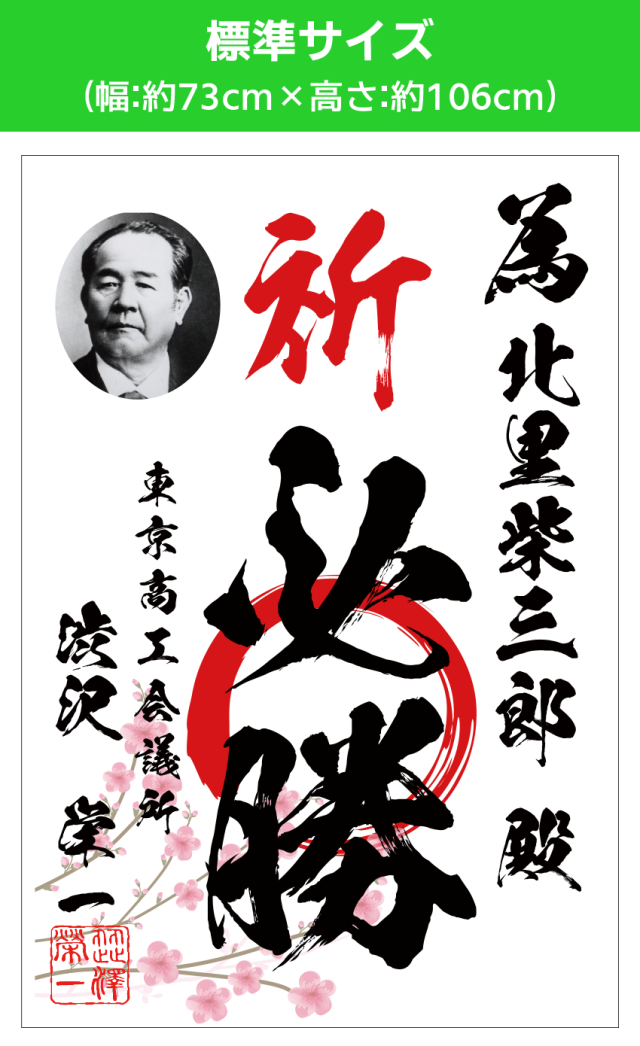 標準サイズ
（幅：約73cm×高さ：約106cm）
為 北里柴三郎 殿
祈
必勝
東京高工会議所
渋沢 栄一
澁澤
榮一